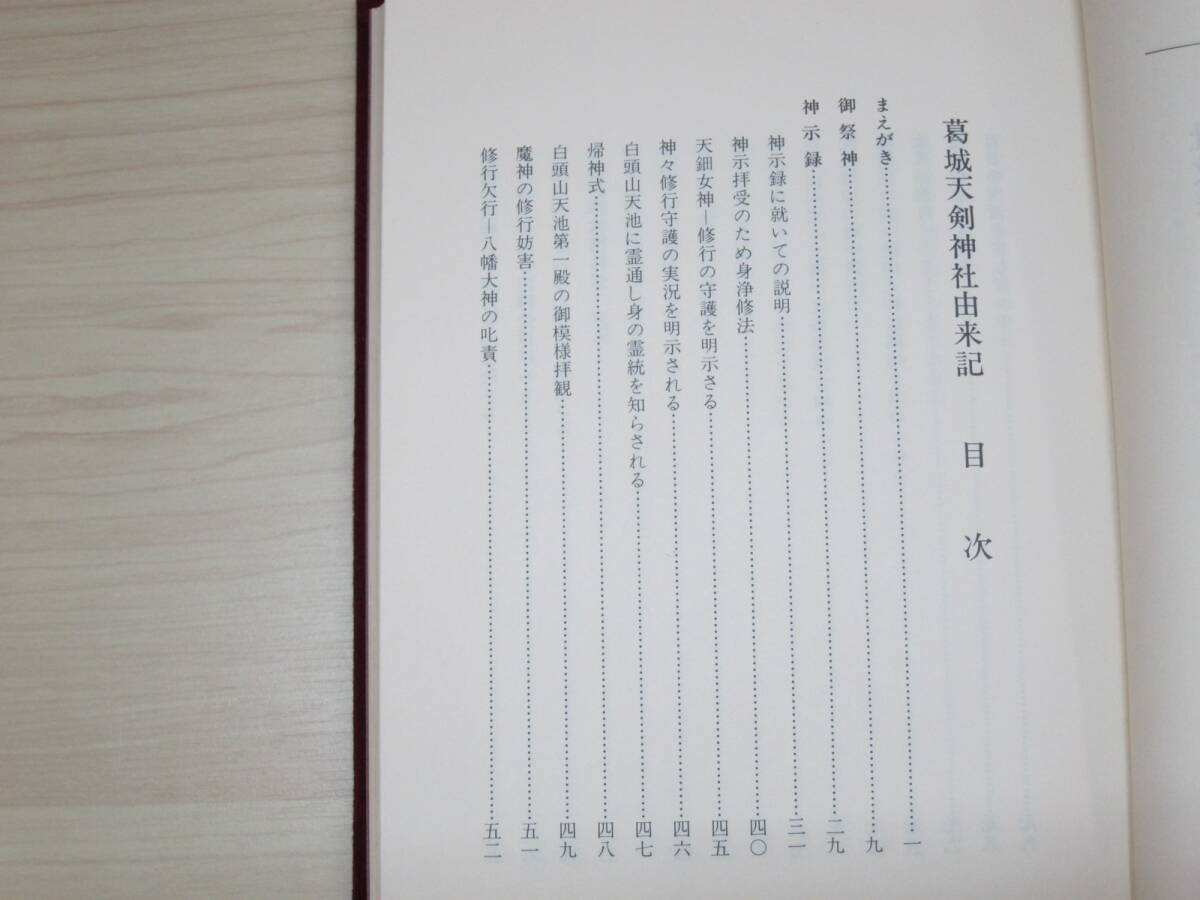 葛城天剣神社由来記　目次
まえがき……一
御祭神……九
神示録……二九
神示録に就いての説明……三一
神示拝受のため身浄修法……四〇
天鈿女神―修行の守護を明示さる……四五
神々修行守護の実況を明示される……四六
白頭山天池に霊通し身の霊統を知らされる……四七
帰神式……四八
白頭山天池第一殿の御模様拝観……四九
魔神の修行妨害……五一
修行欠行―八幡大神の叱責……五二